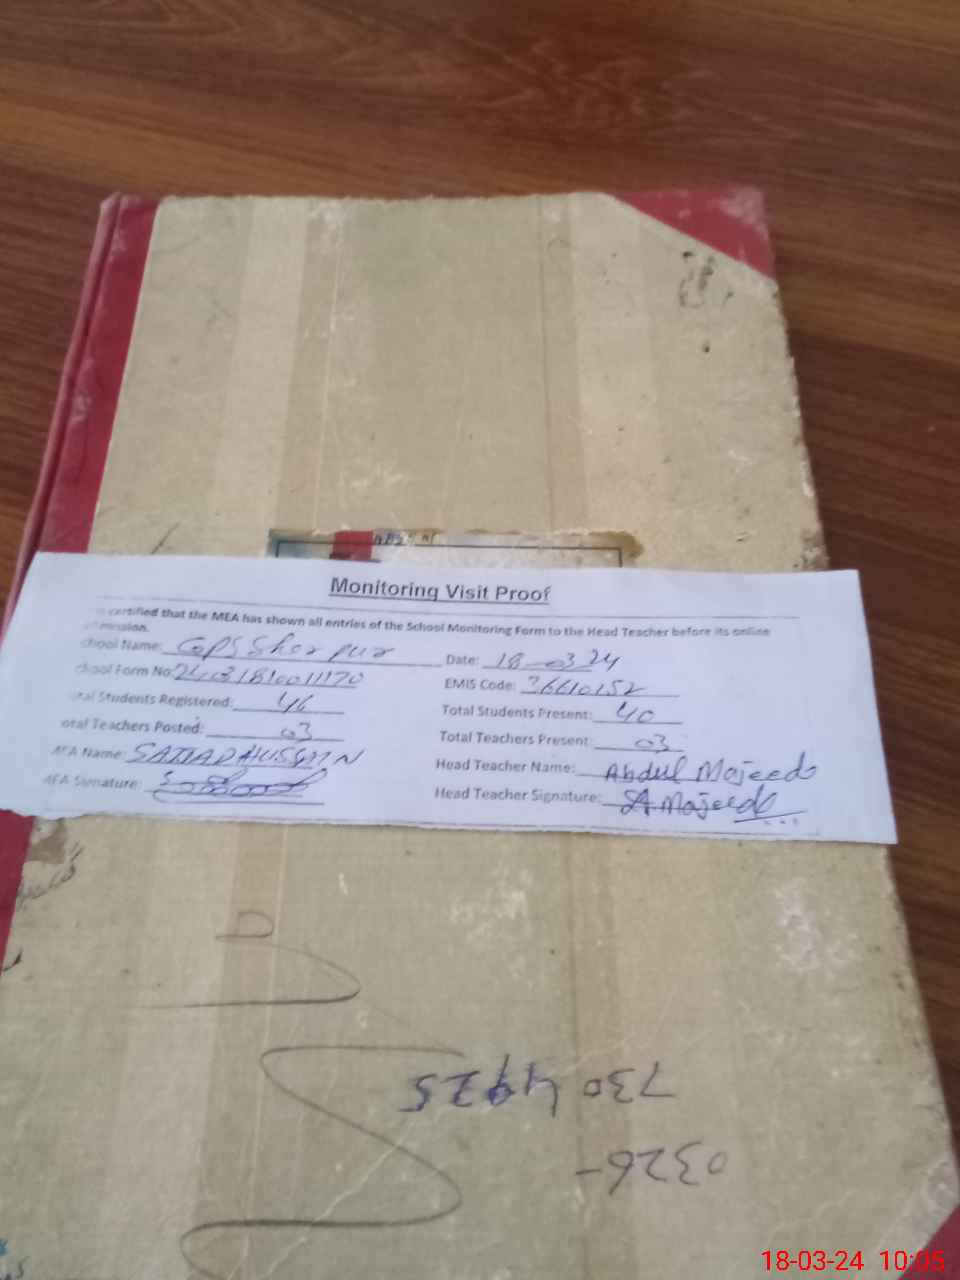 Monitoring Visit Proof
certified that the MEA has shown all entries of the School Monitoring Form to the Head Teacher before its online
mission.
chool Name: GPS Sher pur Date: 18-03 24
chool Form No: 24031810011170 EMIS Code: 36610152
tal Students Registered: 46 Total Students Present: 40
otal Teachers Posted: 03 Total Teachers Present: 03
MEA Name: SAJJAD HUSSAIN Head Teacher Name: Abdul Majeed
MEA Signature: Head Teacher Signature: A Majeed
0326-
730
18-03-24 10:05